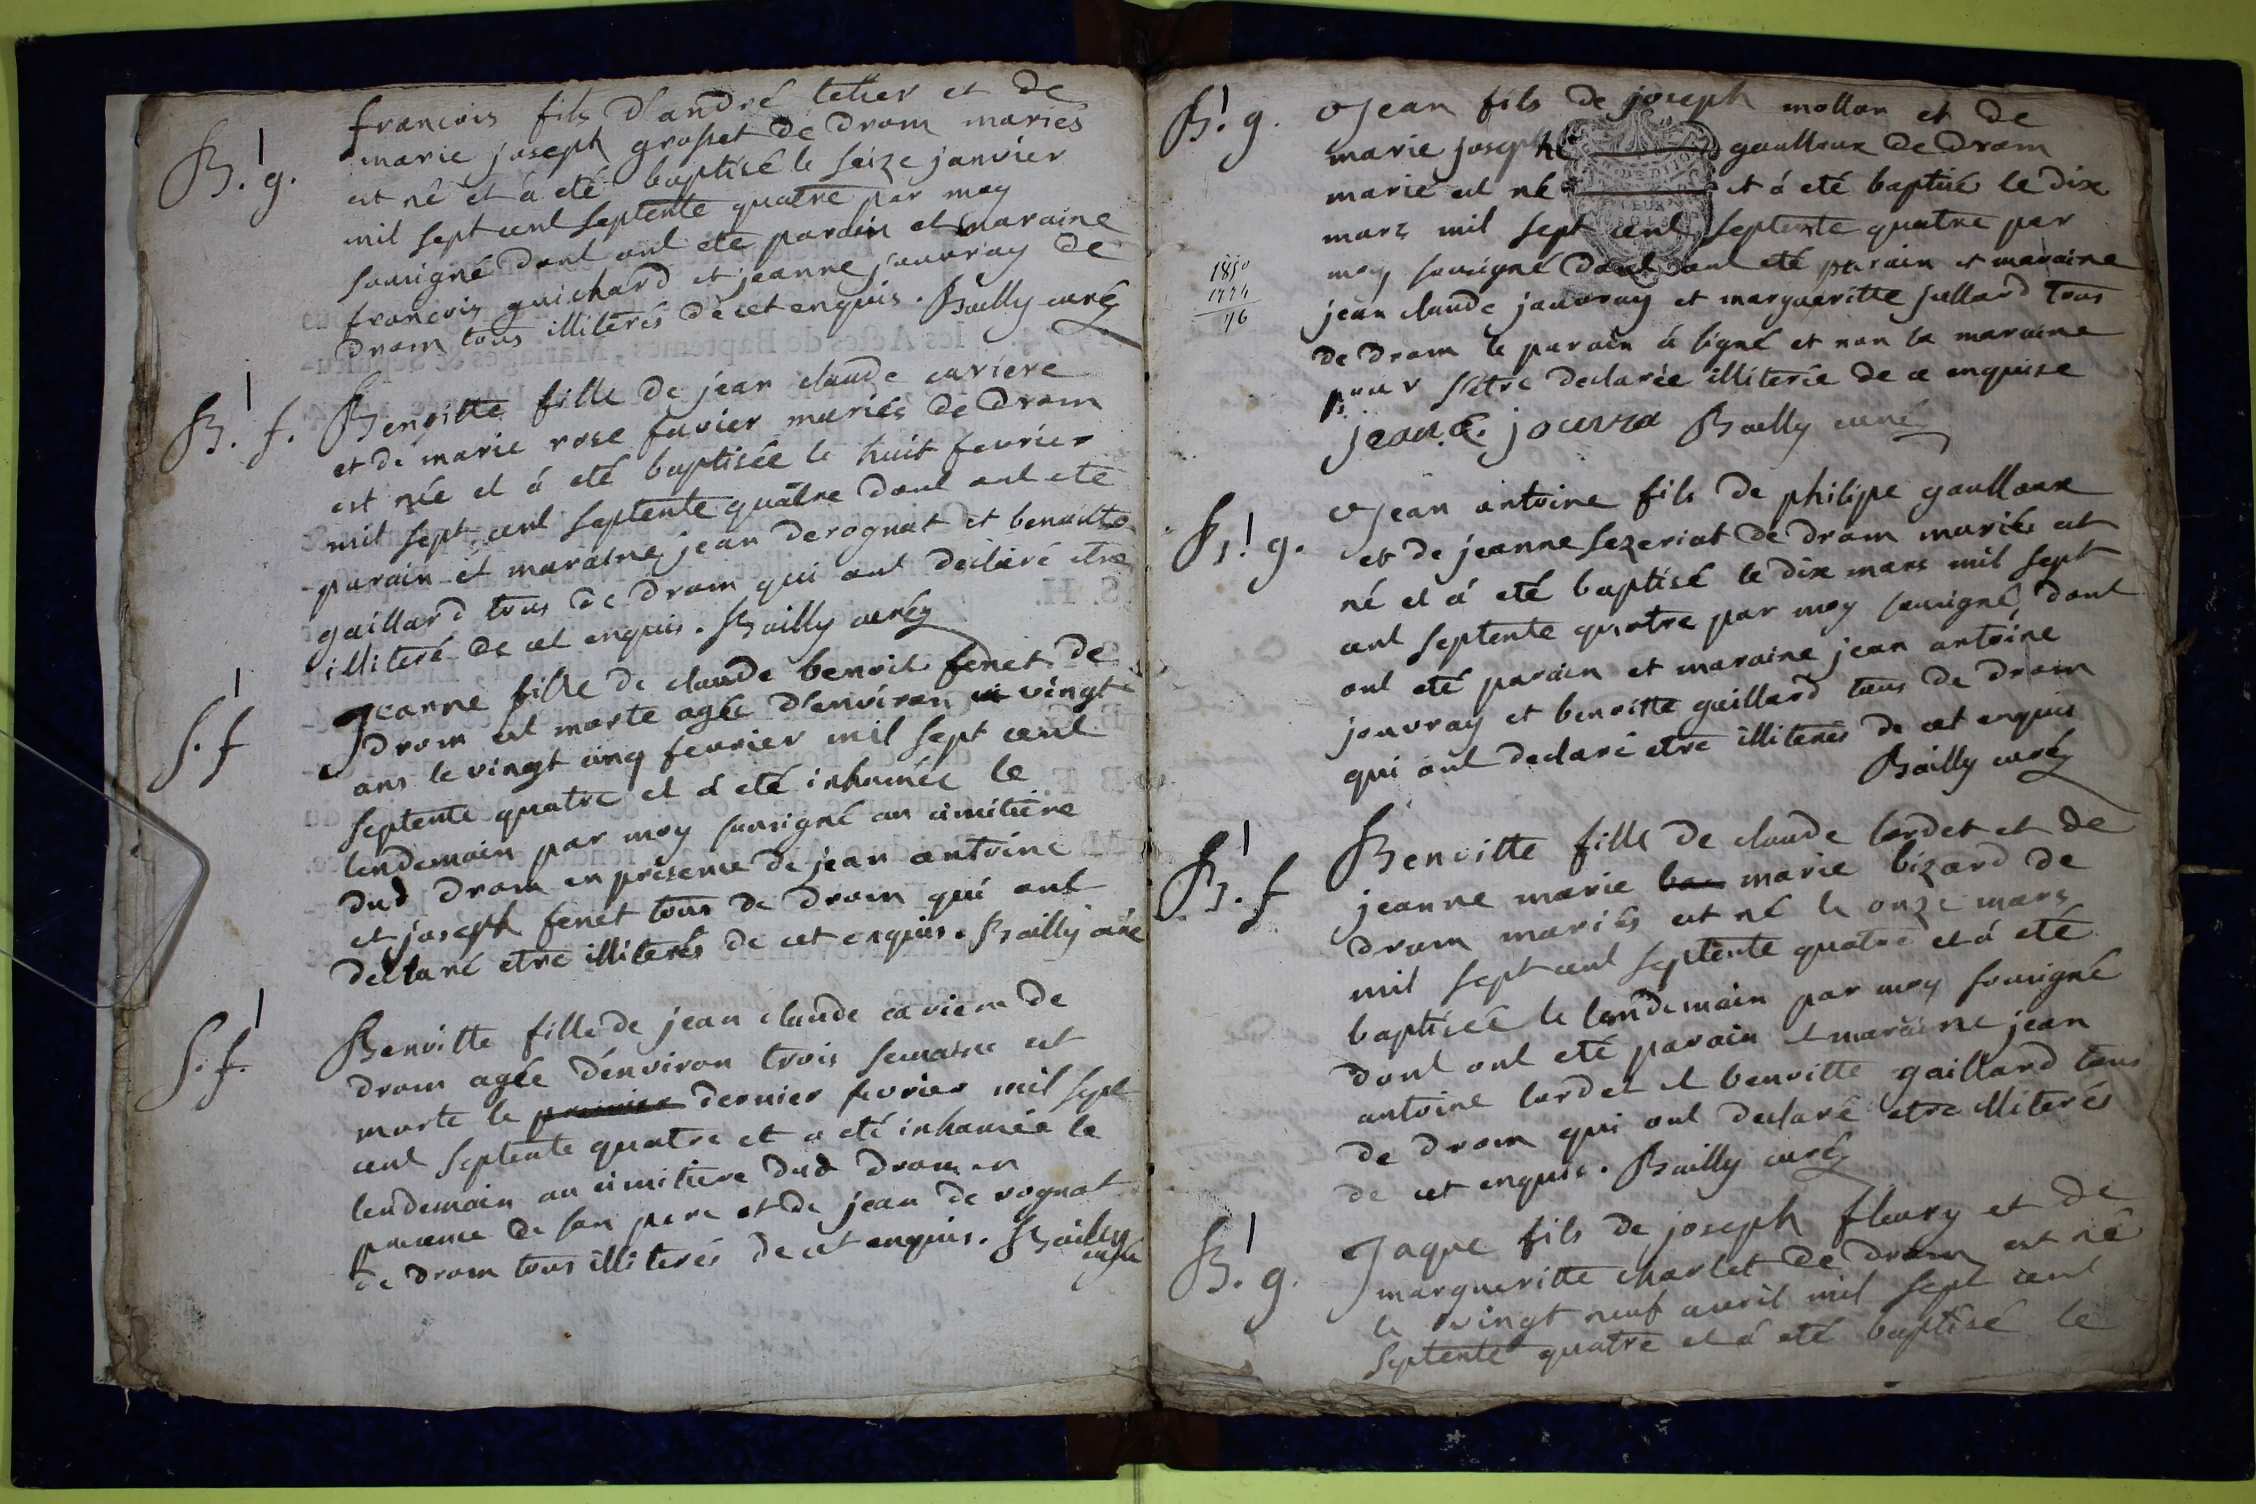 B. g.
françois fils d'andré tetier et de
marie joseph grosset de drom mariés
est né et à eté baptisé le seize janvier
mil sept cent septente quatre par moy
sousigné dont ont eté parain et maraine
françois guichard et jeanne jouvray de
drom tous illiterés de cet enquis. Bailly curé
B. f.
Benoitte fille de jean claude cariere
et de marie rose favier mariés de drom
est née et à eté baptisée le huit fevrier
mil sept cent septente quatre dont ont eté
parain et maraine jean derognat et benoitte
gaillard tous de drom qui ont declaré etre
illiteré de cet enquis. Bailly curé
S. f
Jeanne fille de claude benoit fenet de
drom est morte agée d'environ vingt
ans le vingt cinq fevrier mil sept cent
septente quatre et à eté inhumée le
lendemain par moy sousigné au cimitiere
dud drom en presence de jean antoine
et joseph fenet tous de drom qui ont
declaré etre illiterés de cet enquis. Bailly curé
S. f.
Benoitte fille de jean claude cariere de
drom agée d'environ trois semaine est
morte le premier dernier fevrier mil sept
cent septente quatre et a eté inhumée le
lendemain au cimitiere dud drom en
presence de son pere et de jean de rognat
de drom tous illiterés de cet enquis. Bailly
curé
B. g.
Jean fils de joseph mollon et de
marie josephe gaulloux de drom
marié est né et à eté baptisé le dix
mars mil sept cent septente quatre par
moy sousigné dont ont eté parain et maraine
jean claude jouvray et margueritte jullard tous
de drom le parain à signé et non la maraine
pour s'etre declarée illiterée de ce enquise
jean. c. jouvra Bailly curé
1850
1774
76
B. g.
Jean antoine fils de philipe gaulloux
et de jeanne sezeriat de drom mariés est
né et à eté baptisé le dix mars mil sept
cent septente quatre par moy sousigné, dont
ont eté parain et maraine jean antoine
jouvray et benoitte gaillard tous de drom
qui ont declaré etre illiterés de cet enquis
Bailly curé
B. f
Benoitte fille de claude lardet et de
jeanne marie marie bizard de
drom mariés est né le onze mars
mil sept cent septente quatre et à eté
baptisée le lendemain par moy sousigné
dont ont eté parain et maraine jean
antoine lardet et benoitte gaillard tous
de drom qui ont declaré etre illiterés
de cet enquis. Bailly curé
B. g.
Jaque fils de joseph fleury et de
margueritte charlet de drom est né
le vingt neuf avril mil sept cent
septente quatre et à eté baptisé le